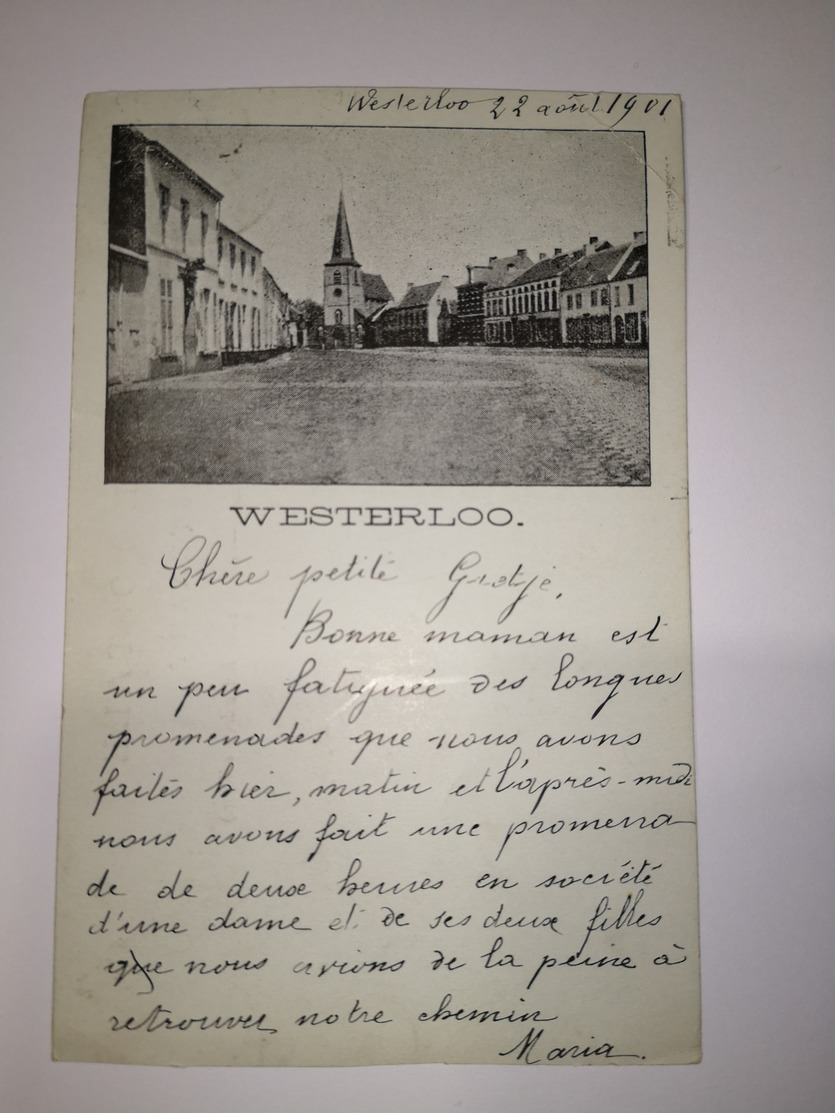 Westerloo 22 août 1901
WESTERLOO.
Chère petite Gretje,
Bonne maman est
un peu fatiguée des longues
promenades que nous avons
faites hier, matin et l'après-midi
nous avons fait une promena
de de deux heures en société
d'une dame et de ses deux filles
que nous avions de la peine à
retrouver notre chemin
Maria.